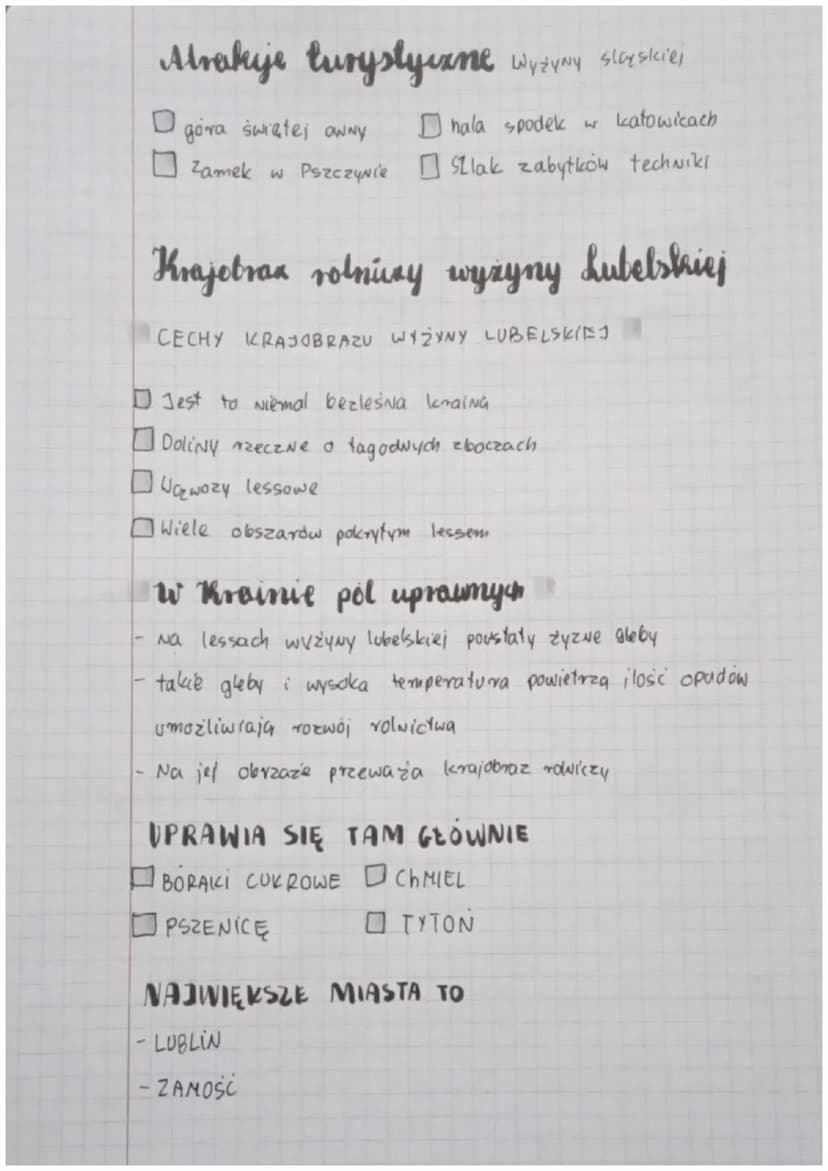 Atrakcje turystyczne Wyżyny śląskiej
góra świętej anny
hala spodek w katowicach
Zamek w Pszczynie
Szlak zabytków techniki
Krajobraz rolniczy wyżyny Lubelskiej
CECHY KRAJOBRAZU WYŻYNY LUBELSKIEJ
Jest to niemal bezleśna kraina
Doliny rzeczne o łagodnych zboczach
Wąwozy lessowe
Wiele obszarów pokrytym lessem
W Krainie pól uprawnych
- Na lessach wyżyny lubelskiej powstały żyzne gleby
- takie gleby i wysoka temperatura powietrza ilość opadów
umożliwiają rozwój rolnictwa
- Na jej obrzaże przeważa krajobraz rolniczy
UPRAWIA SIĘ TAM GŁÓWNIE
BÓRAKI CUKROWE
CHMIEL
PSZENICĘ
TYTOŃ
NAJWIĘKSZE MIASTA TO
- LUBLIN
- ZAMOŚĆ